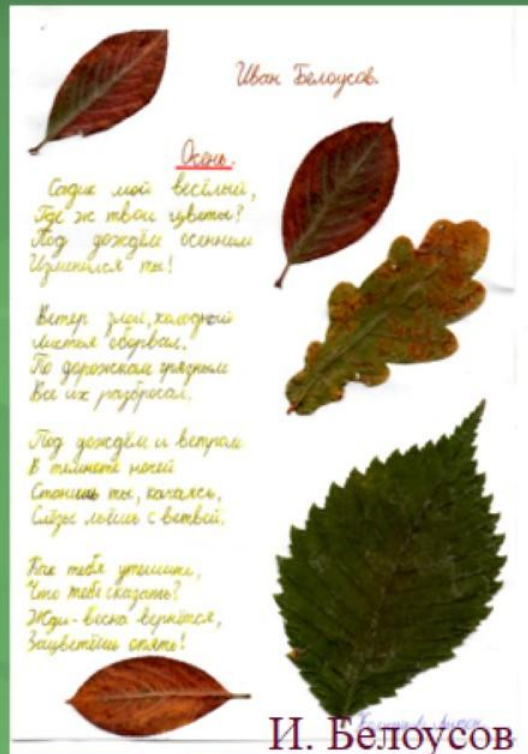 Иван Белоусов.
Осень.
Садик мой весёлый,
Где ж твои цветы?
Под дождём осенним
Изменился ты!
Ветер злой, холодный
листья оборвал.
По дорожкам грязным
Все их разбросал.
Под дождём и ветром
В темноте ночей
Стонешь ты, качаясь,
Слёзы льёшь с ветвей.
Как тебя утешить,
Что тебе сказать?
Жди - весна вернётся,
Зацветёшь опять!
И. Белоусов